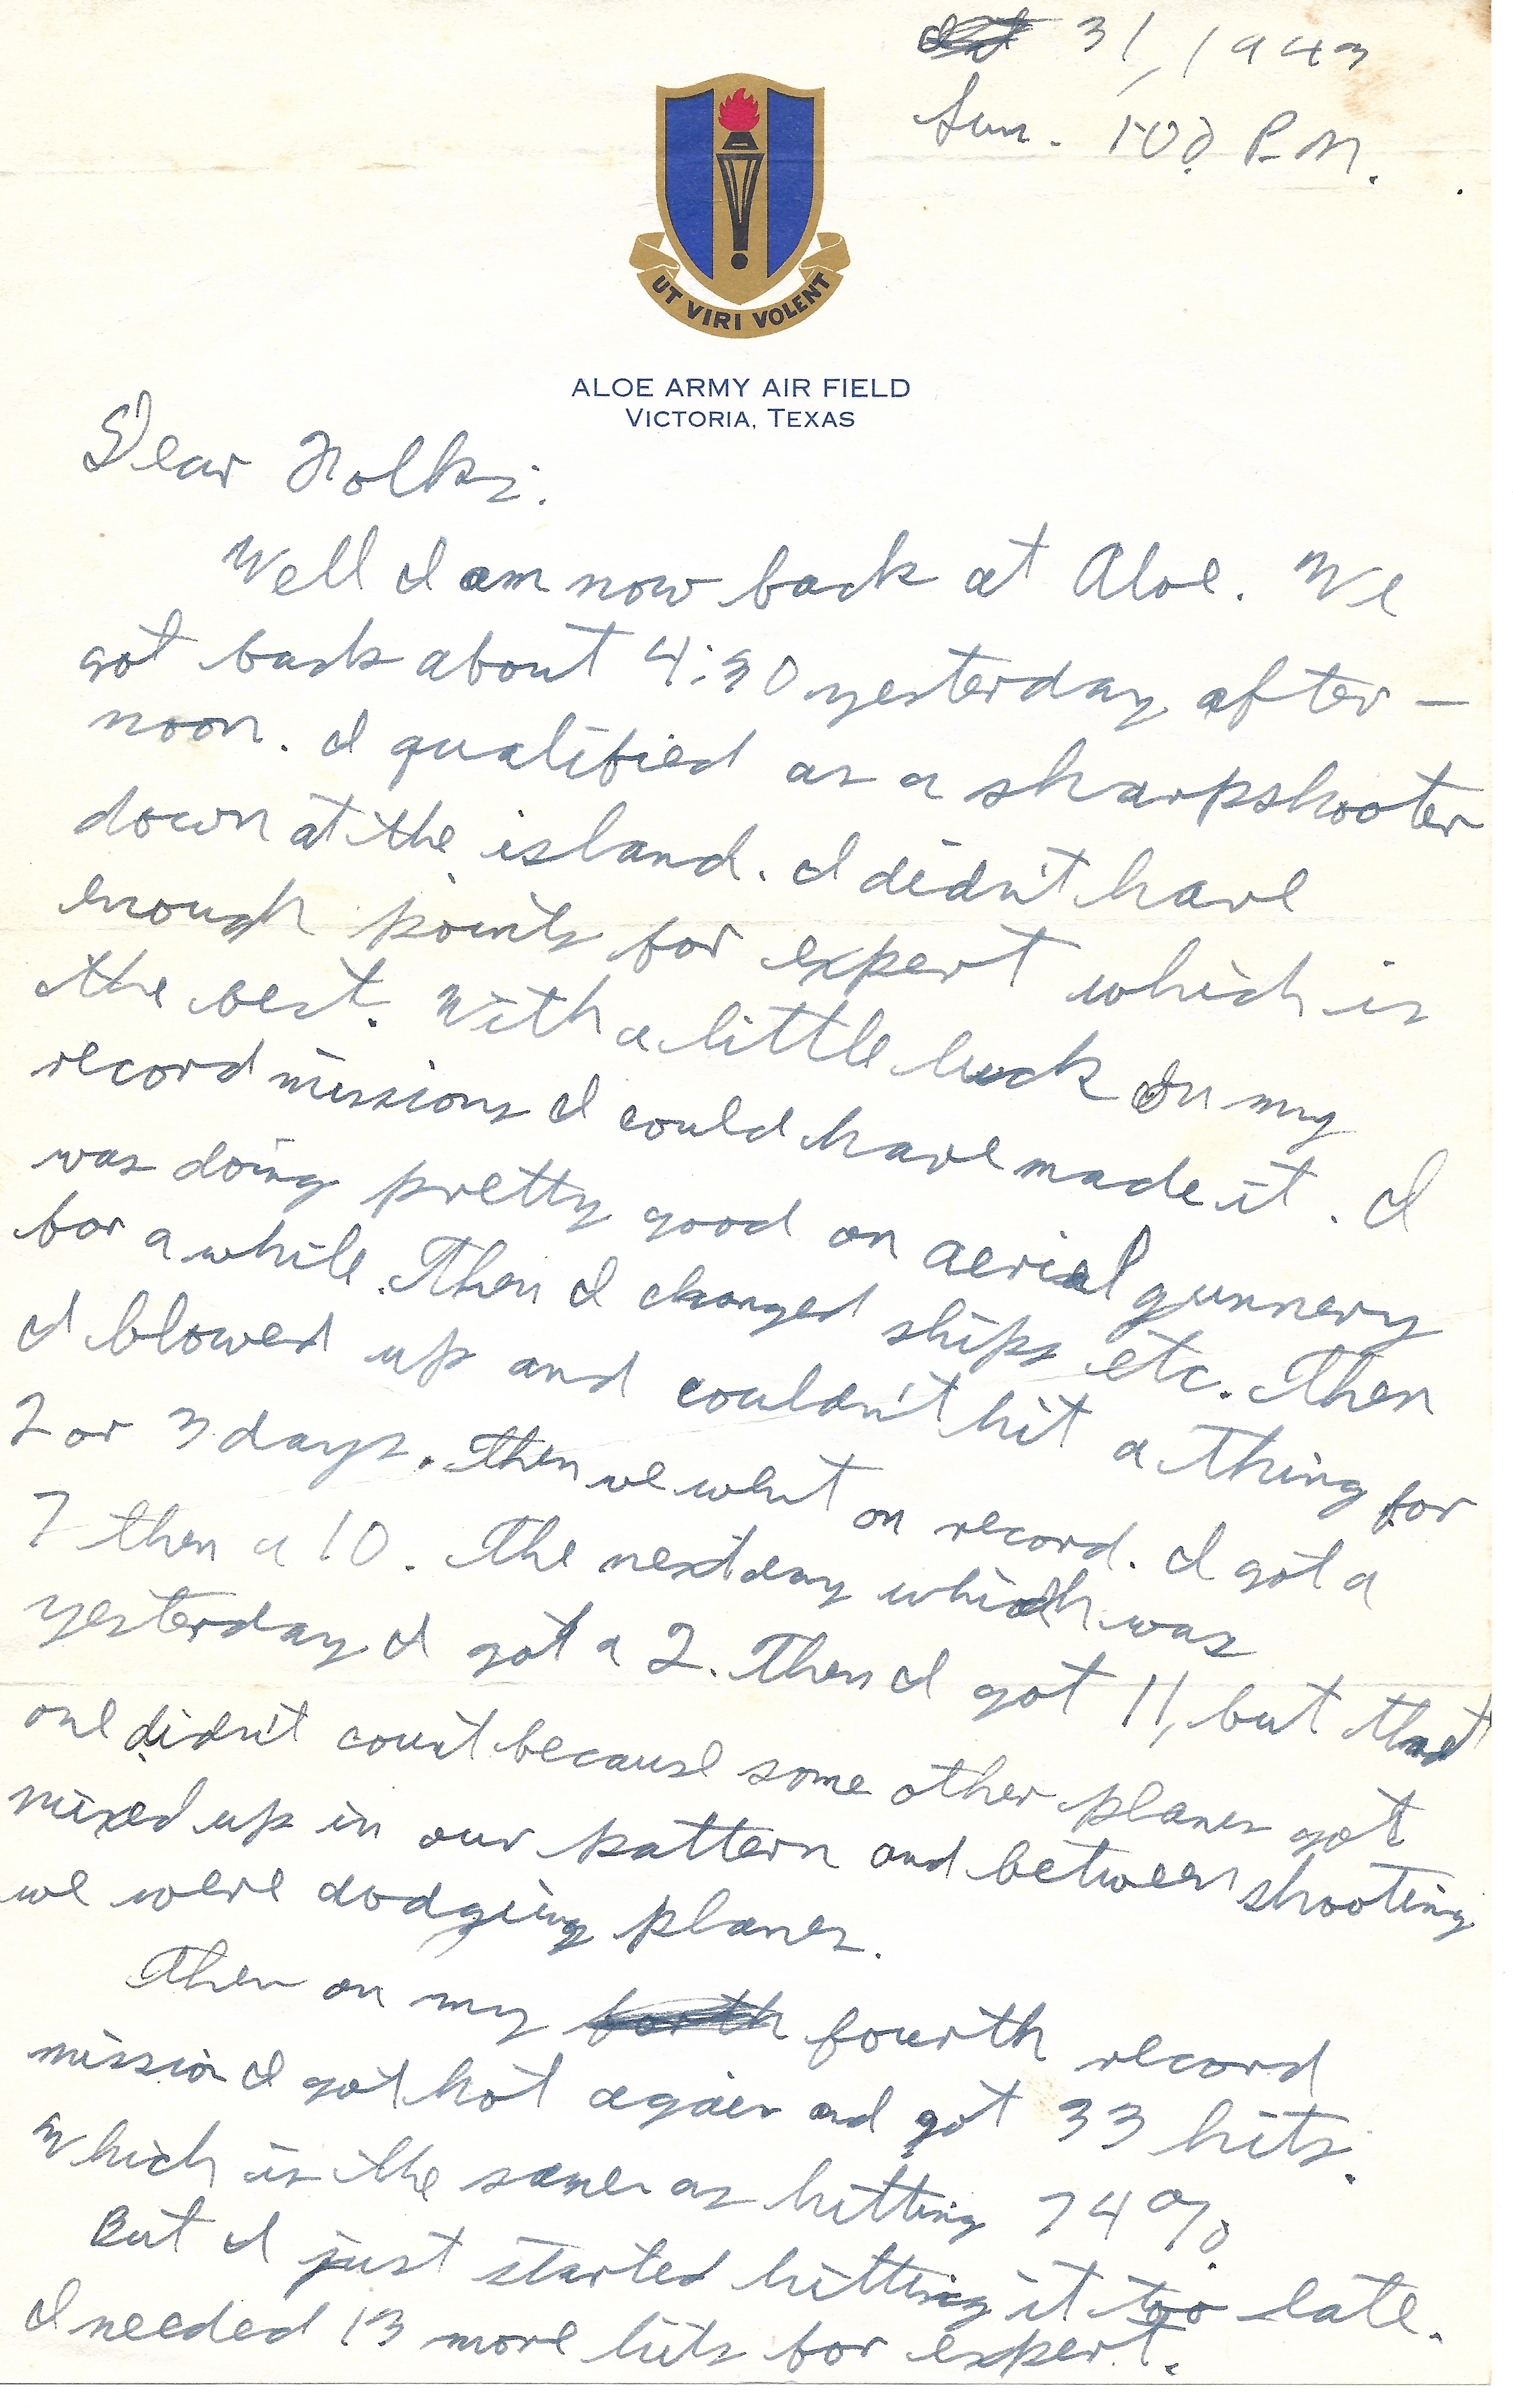 Oct 31, 1943
Sun. 1:00 P.M.
UT VIRI VOLENT
ALOE ARMY AIR FIELD
VICTORIA, TEXAS
Dear Folks:
Well I am now back at Aloe. We
got back about 4:30 yesterday after-
noon. I qualified as a sharpshooter
down at the island. I didn't have
enough points for expert which is
the best. With a little luck on my
record missions I could have made it. I
was doing pretty good on aerial gunnery
for a while. Then I changed ships etc. Then
I blowed up and couldn't hit a thing for
2 or 3 days. Then we went on record. I got a
7 then a 10. The next day which was
yesterday I got a 2. Then I got 11, but that
one didn't count because some other planes got
mixed up in our pattern and between shooting
we were dodging planes.
Then on my forth fourth record
mission I got hot again and got 33 hits.
Which is the same as hitting 74%.
But I just started hitting it too late.
I needed 13 more hits for expert.